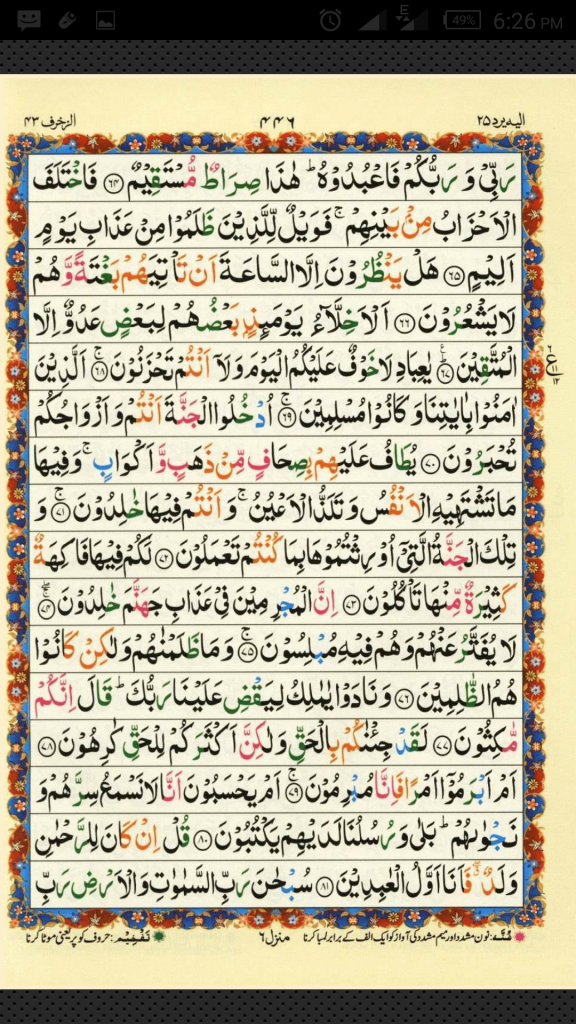 49% 6:26 PM
الیه یرد ۲۵ ۴۴۶ الزخرف ۴۳
رَبِّىْ وَ رَبُّكُمْ فَاعْبُدُوْهُ ؕ هٰذَا صِرَاطٌ مُّسْتَقِيْمٌ ﴿۶۴﴾ فَاخْتَلَفَ
الْاَحْزَابُ مِنْۢ بَيْنِهِمْ ۚ فَوَيْلٌ لِّلَّذِيْنَ ظَلَمُوْا مِنْ عَذَابِ يَوْمٍ
اَلِيْمٍ ﴿۶۵﴾ هَلْ يَنْظُرُوْنَ اِلَّا السَّاعَةَ اَنْ تَاْتِيَهُمْ بَغْتَةً وَّ هُمْ
لَا يَشْعُرُوْنَ ﴿۶۶﴾ اَلْاَخِلَّآءُ يَوْمَىِٕذٍۭ بَعْضُهُمْ لِبَعْضٍ عَدُوٌّ اِلَّا
الْمُتَّقِيْنَ ﴿۶۷﴾ يٰعِبَادِ لَا خَوْفٌ عَلَيْكُمُ الْيَوْمَ وَ لَاۤ اَنْتُمْ تَحْزَنُوْنَ ﴿۶۸﴾ اَلَّذِيْنَ
اٰمَنُوْا بِاٰيٰتِنَا وَ كَانُوْا مُسْلِمِيْنَ ﴿۶۹﴾ اُدْخُلُوا الْجَنَّةَ اَنْتُمْ وَ اَزْوَاجُكُمْ
تُحْبَرُوْنَ ﴿۷۰﴾ يُطَافُ عَلَيْهِمْ بِصِحَافٍ مِّنْ ذَهَبٍ وَّ اَكْوَابٍ ۚ وَ فِيْهَا
مَا تَشْتَهِيْهِ الْاَنْفُسُ وَ تَلَذُّ الْاَعْيُنُ ۚ وَ اَنْتُمْ فِيْهَا خٰلِدُوْنَ ﴿۷۱﴾ وَ
تِلْكَ الْجَنَّةُ الَّتِىْۤ اُوْرِثْتُمُوْهَا بِمَا كُنْتُمْ تَعْمَلُوْنَ ﴿۷۲﴾ لَكُمْ فِيْهَا فَاكِهَةٌ
كَثِيْرَةٌ مِّنْهَا تَاْكُلُوْنَ ﴿۷۳﴾ اِنَّ الْمُجْرِمِيْنَ فِىْ عَذَابِ جَهَنَّمَ خٰلِدُوْنَ ﴿۷۴﴾
لَا يُفَتَّرُ عَنْهُمْ وَ هُمْ فِيْهِ مُبْلِسُوْنَ ﴿۷۵﴾ وَ مَا ظَلَمْنٰهُمْ وَ لٰكِنْ كَانُوْا
هُمُ الظّٰلِمِيْنَ ﴿۷۶﴾ وَ نَادَوْا يٰمٰلِكُ لِيَقْضِ عَلَيْنَا رَبُّكَ ؕ قَالَ اِنَّكُمْ
مّٰكِثُوْنَ ﴿۷۷﴾ لَقَدْ جِئْنٰكُمْ بِالْحَقِّ وَ لٰكِنَّ اَكْثَرَكُمْ لِلْحَقِّ كٰرِهُوْنَ ﴿۷۸﴾
اَمْ اَبْرَمُوْۤا اَمْرًا فَاِنَّا مُبْرِمُوْنَ ﴿۷۹﴾ اَمْ يَحْسَبُوْنَ اَنَّا لَا نَسْمَعُ سِرَّهُمْ وَ
نَجْوٰىهُمْ ؕ بَلٰى وَ رُسُلُنَا لَدَيْهِمْ يَكْتُبُوْنَ ﴿۸۰﴾ قُلْ اِنْ كَانَ لِلرَّحْمٰنِ
وَلَدٌ ۖ فَاَنَا اَوَّلُ الْعٰبِدِيْنَ ﴿۸۱﴾ سُبْحٰنَ رَبِّ السَّمٰوٰتِ وَ الْاَرْضِ رَبِّ
ع
غنّہ: نون مشدد اور میم مشدد کی آواز کو ایک الف کے برابر لمبا کرنا منزل ۶ تفخیم: حروف کو پر یعنی موٹا کرنا